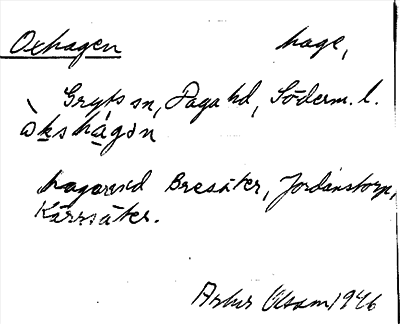 Oxhagen hage,
Gryts sn, Daga hd, Söderm. l.
òkshágən
hagar vid Bresäter, Jordanstorp,
Kärrsäter.
1946